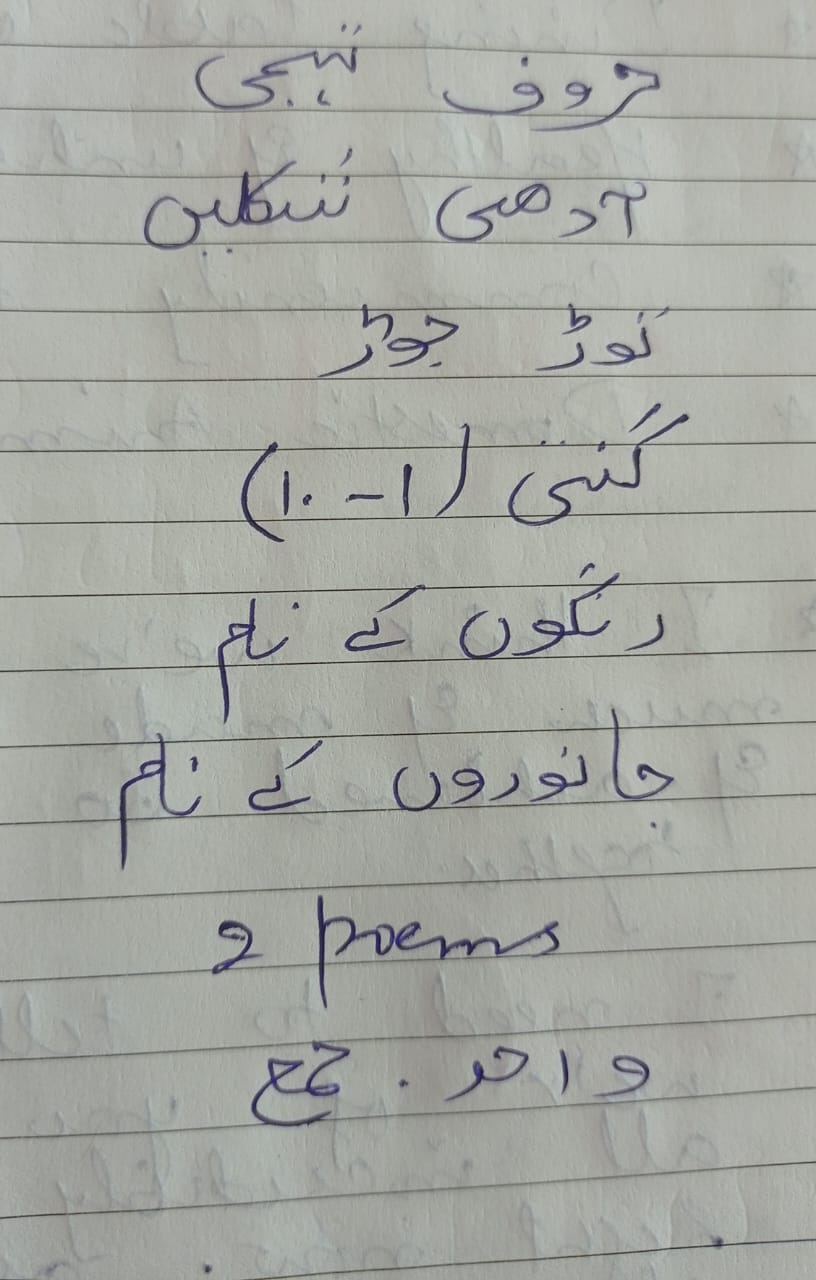 حروف تہجی
آدھی شکلیں
توڑ جوڑ
گنتی (۱ - ۱۰)
رنگوں کے نام
جانوروں کے نام
2 poems
واحد . جمع